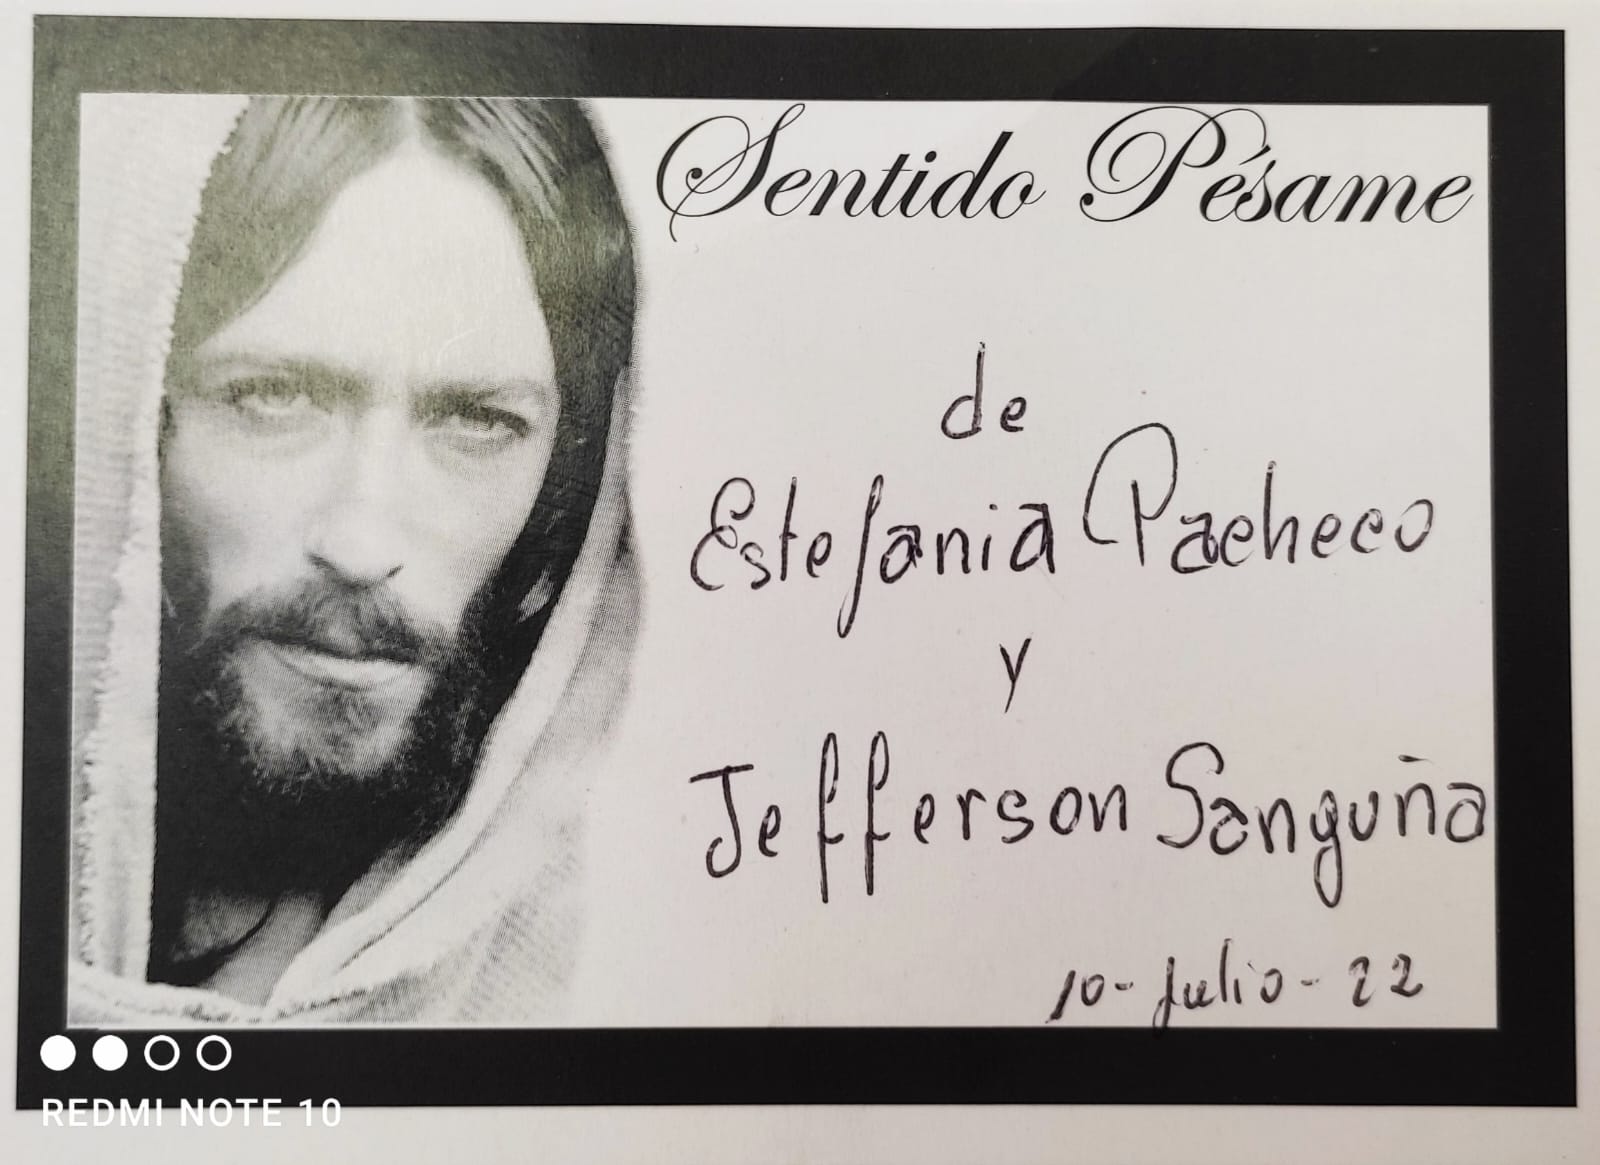 Sentido Pésame
de
Estefania Pacheco
y
Jefferson Sanguña
10-Julio-22
REDMI NOTE 10